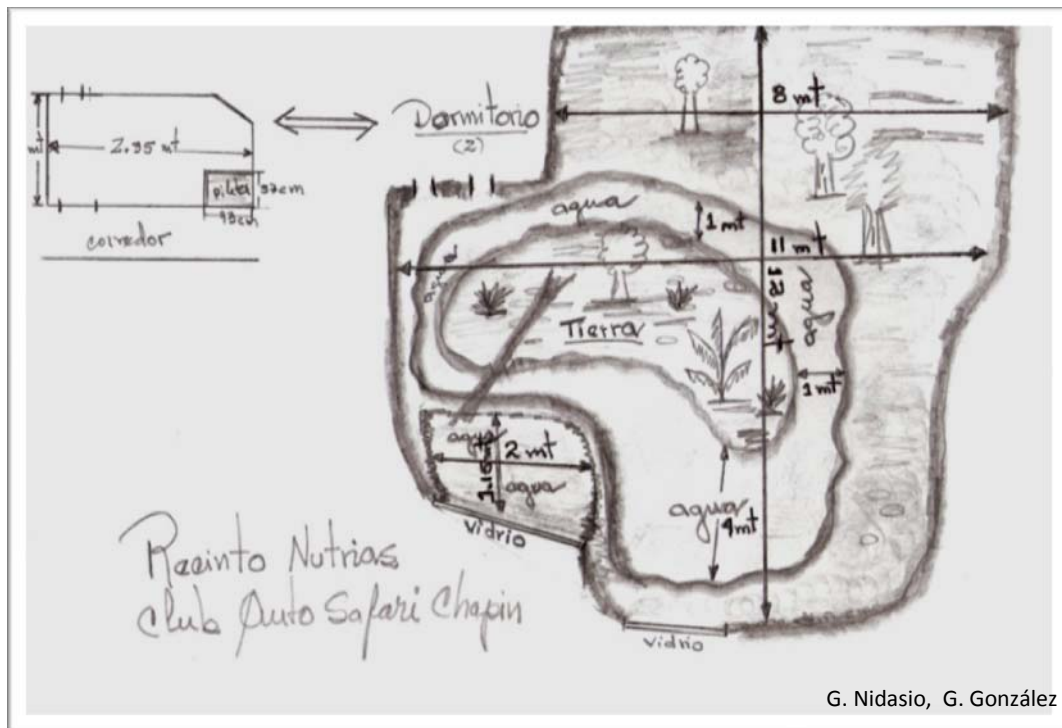 mt
2.35 mt
pileta
32cm
93cm
corredor
Dormitorio
(2)
8 mt
agua
1 mt
11 mt
12 mt
agua
agua
Tierra
1 mt
agua
2 mt
1.16mt
agua
vidrio
agua
4mt
vidrio
Recinto Nutrias
Club Auto Safari Chapin
G. Nidasio, G. González